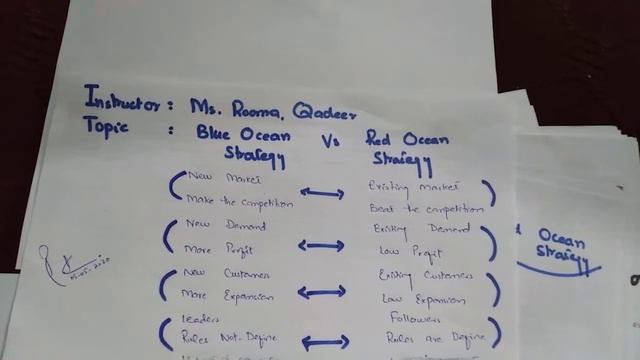 Instructor : Ms. Rooma, Qadeer
Topic : Blue Ocean Strategy Vs Red Ocean Strategy
New Market ↔ Existing Market
Make the competition Beat the competition
New Demand Existing Demand
More Profit ↔ Low Profit
New Customers Existing Customers
More Expansion ↔ Low Expansion
Leaders Followers
Rules Not-Define ↔ Rules are Define
Ocean
Strategy
05-05-2020